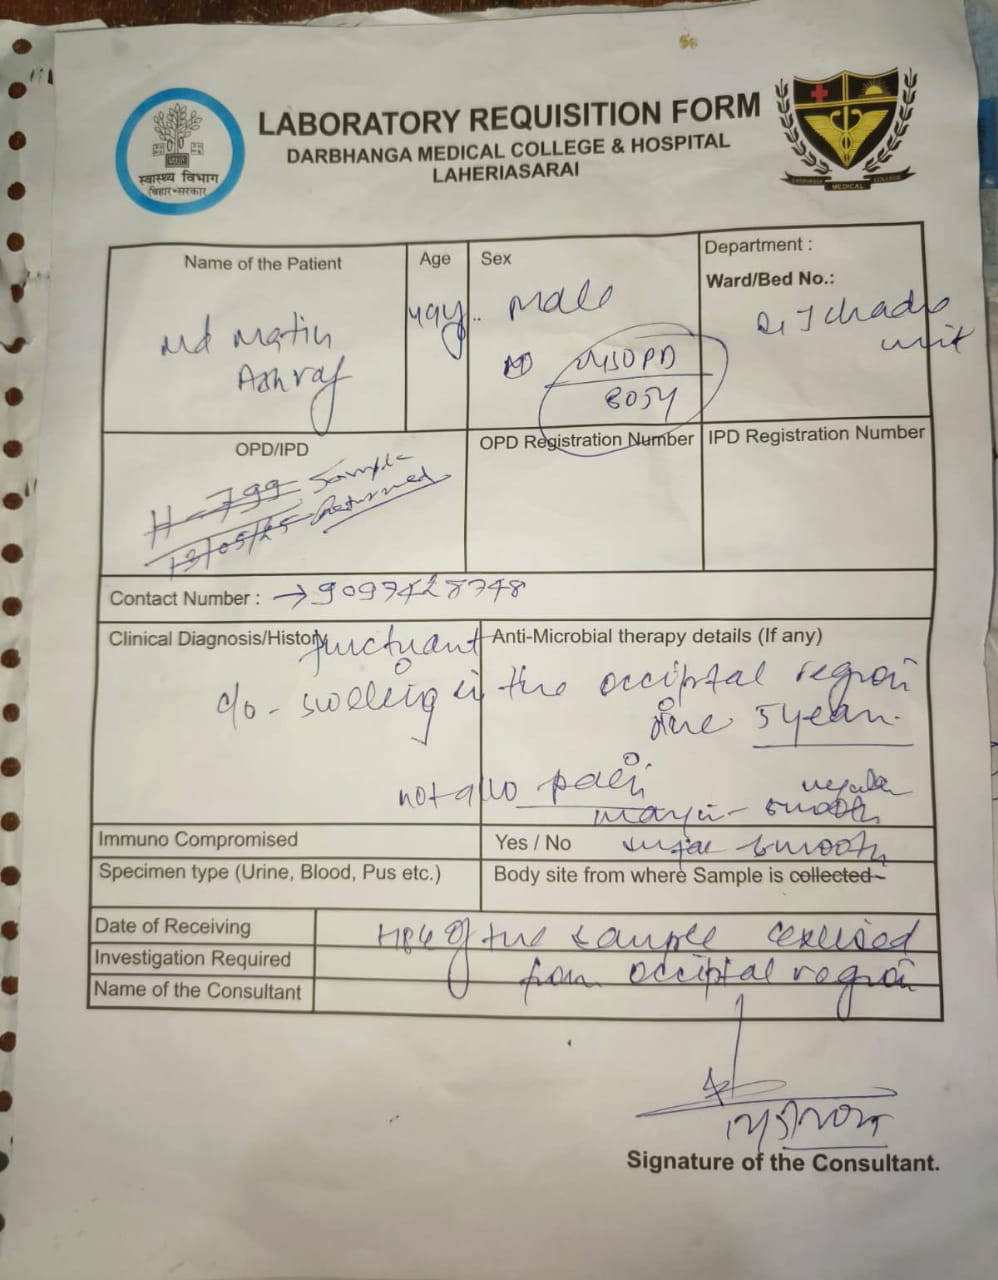 LABORATORY REQUISITION FORM
DARBHANGA MEDICAL COLLEGE & HOSPITAL
LAHERIASARAI
स्वास्थ्य विभाग
बिहार सरकार
DARBHANGA MEDICAL COLLEGE
Name of the Patient
Md Matin
Ashraf
Age
44y
Sex
Male
8054
Department :
Ward/Bed No.:
unit
OPD/IPD
H-799 Sample
13/05/25 Returned
OPD Registration Number
IPD Registration Number
Contact Number : → 9097428748
Clinical Diagnosis/History
Anti-Microbial therapy details (If any)
c/o - swelling in the occiptal region
since 5 year.
not a/w pain
regular
margin - smooth
Immuno Compromised
Yes / No
smooth
Specimen type (Urine, Blood, Pus etc.)
Body site from where Sample is collected
Date of Receiving
HPE of the sample excised
Investigation Required
from occiptal region
Name of the Consultant
Signature of the Consultant.